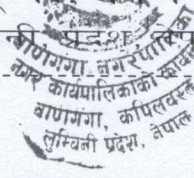 प्रदेश
बाणगंगा नगरपालिका
नगर कार्यपालिकाको कार्यालय
बाणगंगा, कपिलवस्तु
लुम्बिनी प्रदेश, नेपाल